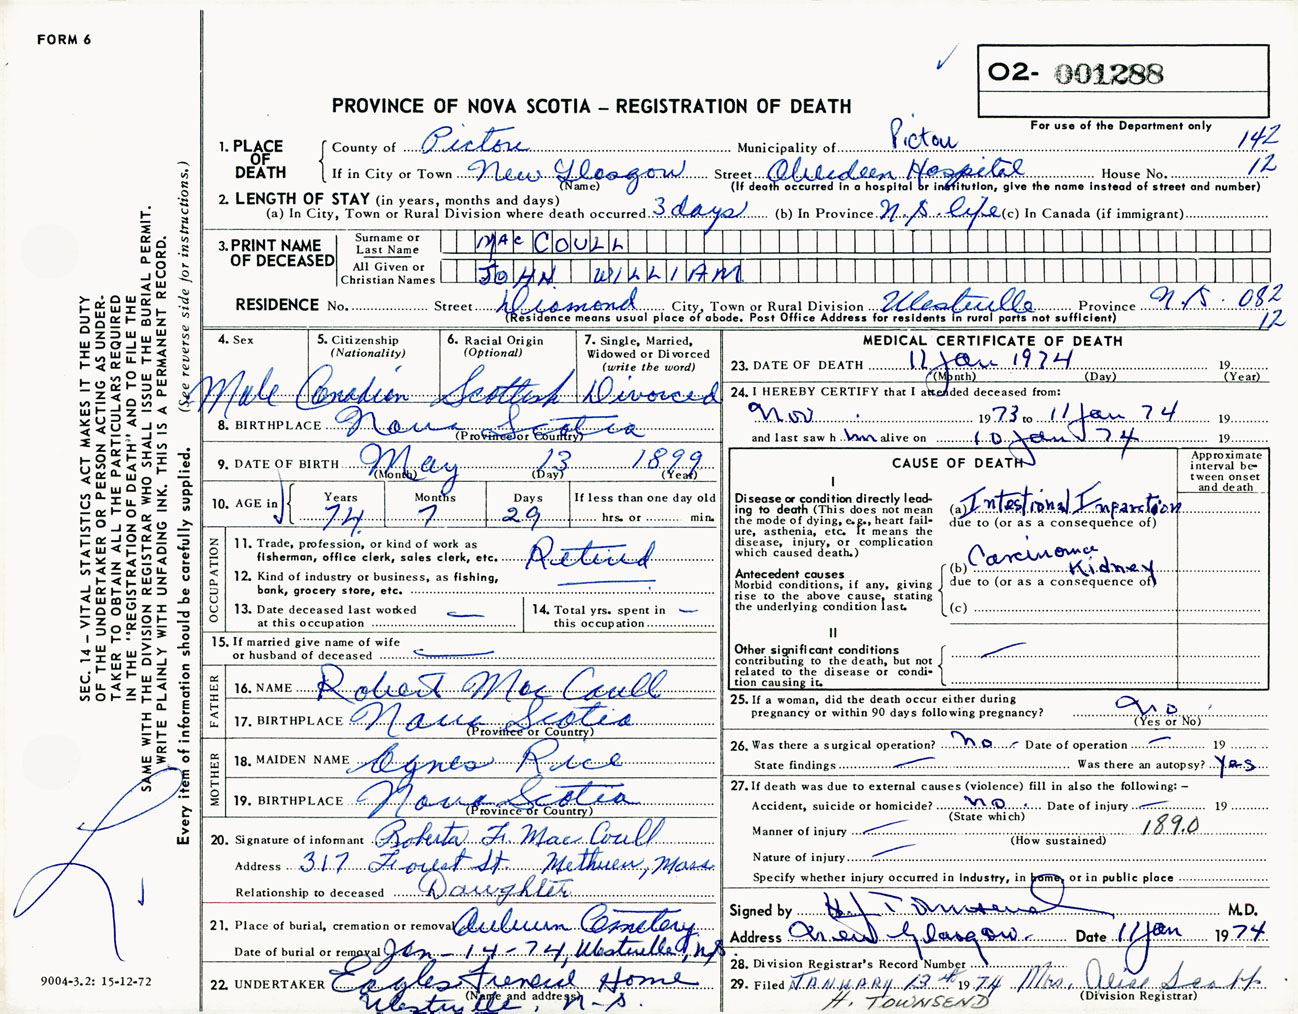 FORM 6
O2- 001288
PROVINCE OF NOVA SCOTIA – REGISTRATION OF DEATH
For use of the Department only
1. PLACE OF DEATH County of Pictou Municipality of Pictou 142
If in City or Town New Glasgow Street Aberdeen Hospital House No. 12
(Name) (If death occurred in a hospital or institution, give the name instead of street and number)
2. LENGTH OF STAY (in years, months and days)
(a) In City, Town or Rural Division where death occurred 3 days (b) In Province N.S. life (c) In Canada (if immigrant)
3. PRINT NAME OF DECEASED Surname or Last Name MacCOULL
All Given or Christian Names JOHN WILLIAM
RESIDENCE No. Street Diamond City, Town or Rural Division Westville Province N.S. 082
(Residence means usual place of abode. Post Office Address for residents in rural parts not sufficient) 12
4. Sex 5. Citizenship (Nationality) 6. Racial Origin (Optional) 7. Single, Married, Widowed or Divorced (write the word)
Male Canadian Scottish Divorced
8. BIRTHPLACE Nova Scotia
(Province or Country)
9. DATE OF BIRTH May 13 1899
(Month) (Day) (Year)
10. AGE in Years Months Days If less than one day old
74 7 29 hrs. or min.
OCCUPATION
11. Trade, profession, or kind of work as fisherman, office clerk, sales clerk, etc. Retired
12. Kind of industry or business, as fishing, bank, grocery store, etc.
13. Date deceased last worked at this occupation — 14. Total yrs. spent in this occupation —
15. If married give name of wife or husband of deceased —
FATHER
16. NAME Robert MacCoull
17. BIRTHPLACE Nova Scotia
(Province or Country)
MOTHER
18. MAIDEN NAME Agnes Rice
19. BIRTHPLACE Nova Scotia
(Province or Country)
20. Signature of informant Roberta F. MacCoull
Address 317 Forest St. Methuen, Mass
Relationship to deceased Daughter
21. Place of burial, cremation or removal Auburn Cemetery
Date of burial or removal Jan - 14 - 74, Westville, N.S.
22. UNDERTAKER Eagles Funeral Home
(Name and address)
Westville, N-S.
MEDICAL CERTIFICATE OF DEATH
23. DATE OF DEATH 11 Jan 1974 19
(Month) (Day) (Year)
24. I HEREBY CERTIFY that I attended deceased from:
Nov 1973 to 11 Jan 74 19
and last saw h im alive on 10 Jan 74 19
CAUSE OF DEATH
Approximate interval between onset and death
I
Disease or condition directly leading to death (This does not mean the mode of dying, e.g., heart failure, asthenia, etc. It means the disease, injury, or complication which caused death.)
(a) Intestional Impaction
due to (or as a consequence of)
Antecedent causes
Morbid conditions, if any, giving rise to the above cause, stating the underlying condition last.
(b) Carcinoma Kidney
due to (or as a consequence of)
(c)
II
Other significant conditions
contributing to the death, but not related to the disease or condition causing it. —
25. If a woman, did the death occur either during pregnancy or within 90 days following pregnancy? No
(Yes or No)
26. Was there a surgical operation? No Date of operation — 19
State findings — Was there an autopsy? Yes
27. If death was due to external causes (violence) fill in also the following: –
Accident, suicide or homicide? no Date of injury — 19
(State which)
Manner of injury — 189.0
(How sustained)
Nature of injury —
Specify whether injury occurred in Industry, in home, or in public place
Signed by H Townsend M.D.
Address New Glasgow Date 11 Jan 1974
28. Division Registrar's Record Number
29. Filed JANUARY 13th 1974 Mrs. Alice Scott
H. TOWNSEND (Division Registrar)
SEC. 14 – VITAL STATISTICS ACT MAKES IT THE DUTY
OF THE UNDERTAKER OR PERSON ACTING AS UNDER-
TAKER TO OBTAIN ALL THE PARTICULARS REQUIRED
IN THE "REGISTRATION OF DEATH" AND TO FILE THE
SAME WITH THE DIVISION REGISTRAR WHO SHALL ISSUE THE BURIAL PERMIT.
WRITE PLAINLY WITH UNFADING INK. THIS IS A PERMANENT RECORD.
Every item of information should be carefully supplied. (See reverse side for instructions.)
9004-3.2: 15-12-72